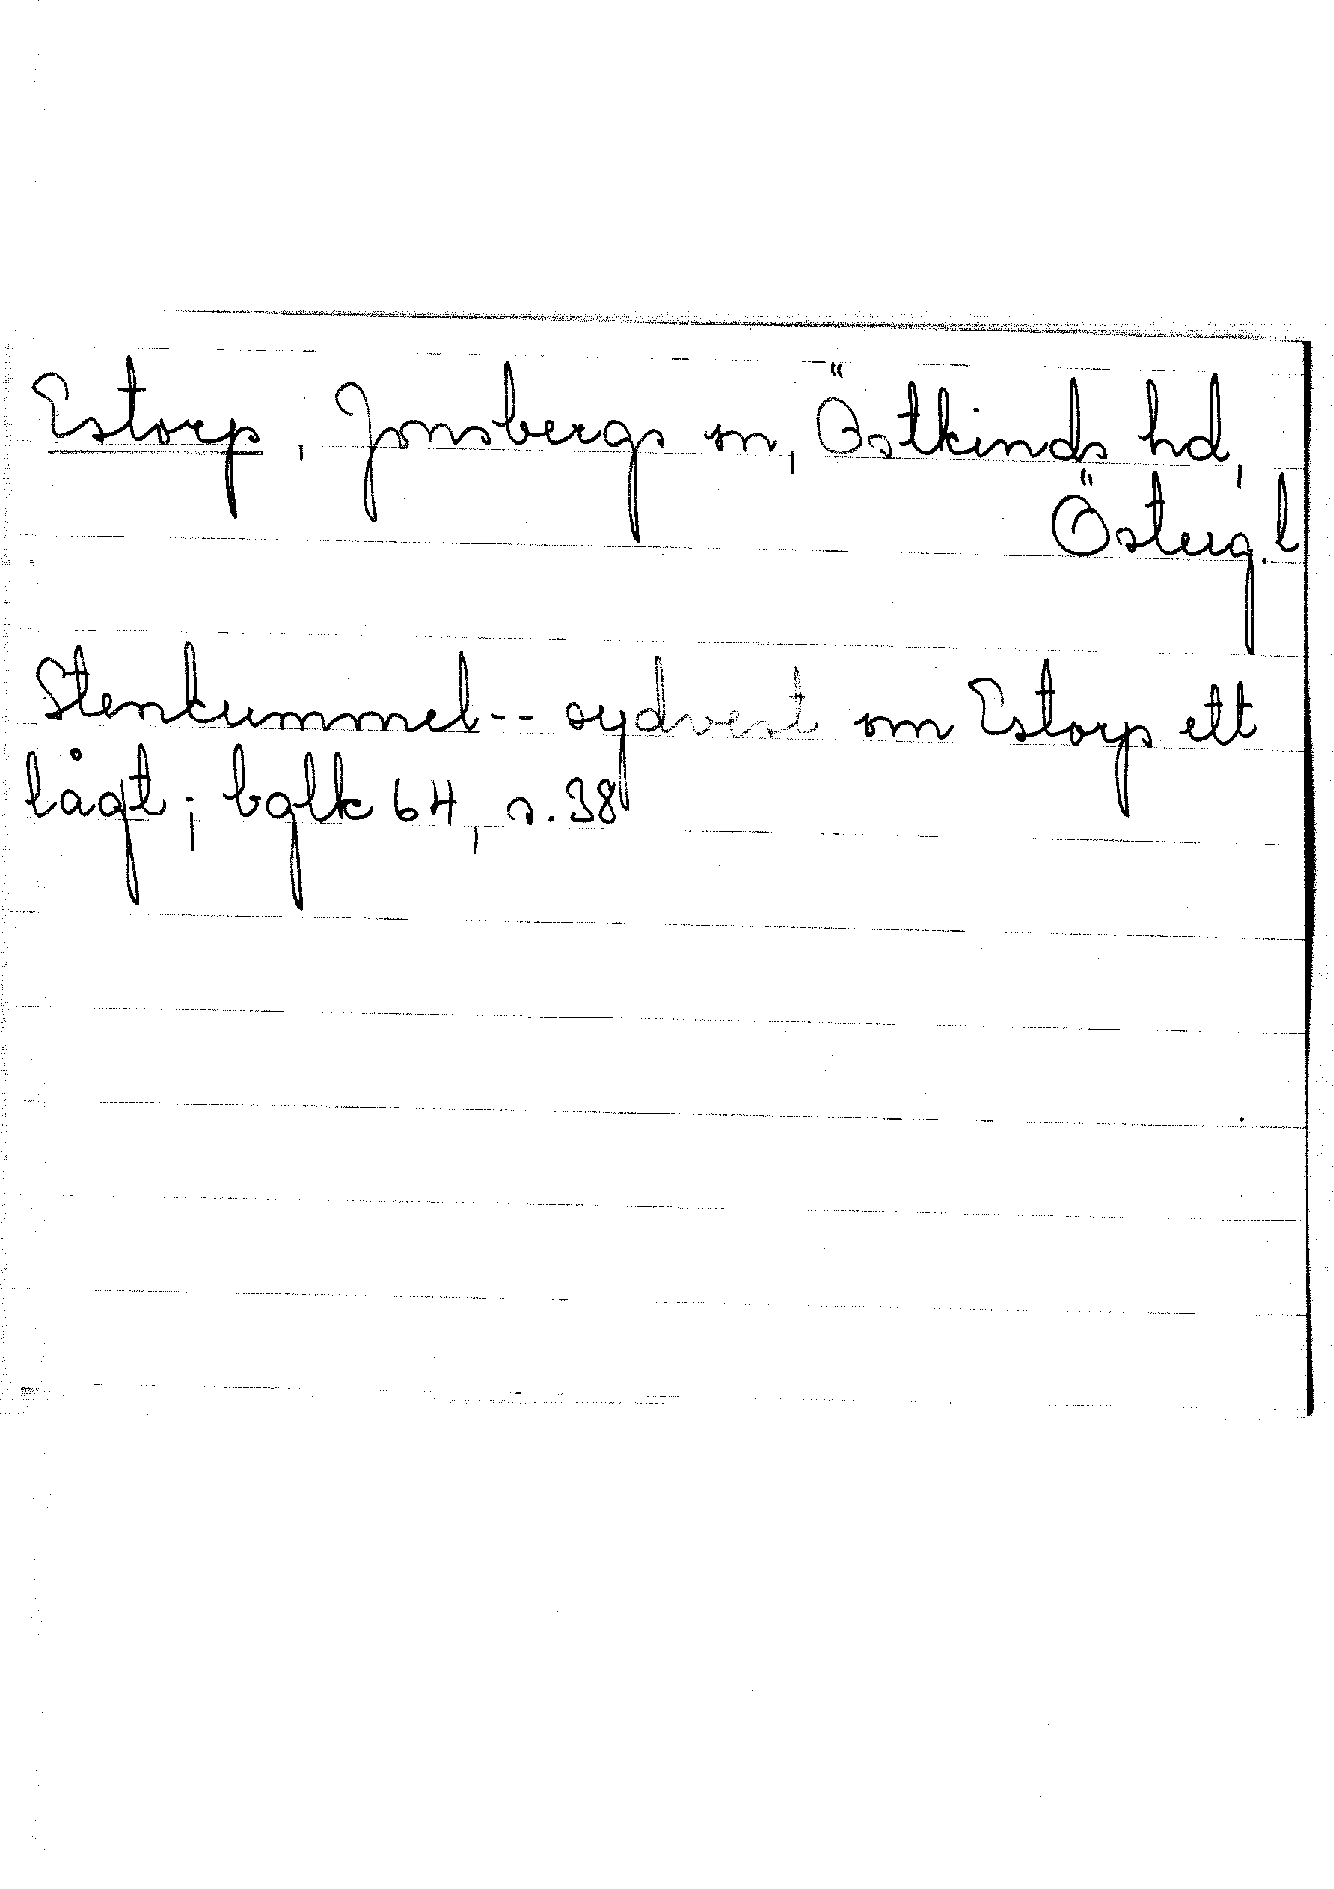 Estorp, Jonsbergs sn, Östkinds hd,
Österg. l
Stenkummel-- sydvest om Estorp ett
lågt; bglk 64, s. 38